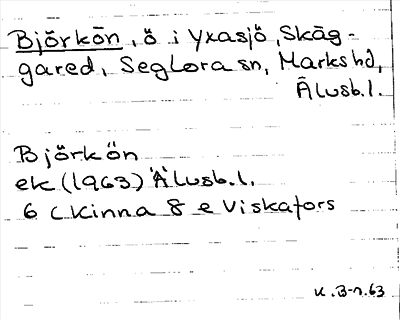 Björkön, ö i Yxasjö, Skäg-
gared, Seglora sn, Marks hd,
Älvsb.l.
Björkön
ek (1963) Älvsb.l.
6 C Kinna 8 e Viskafors
K.B-n.63